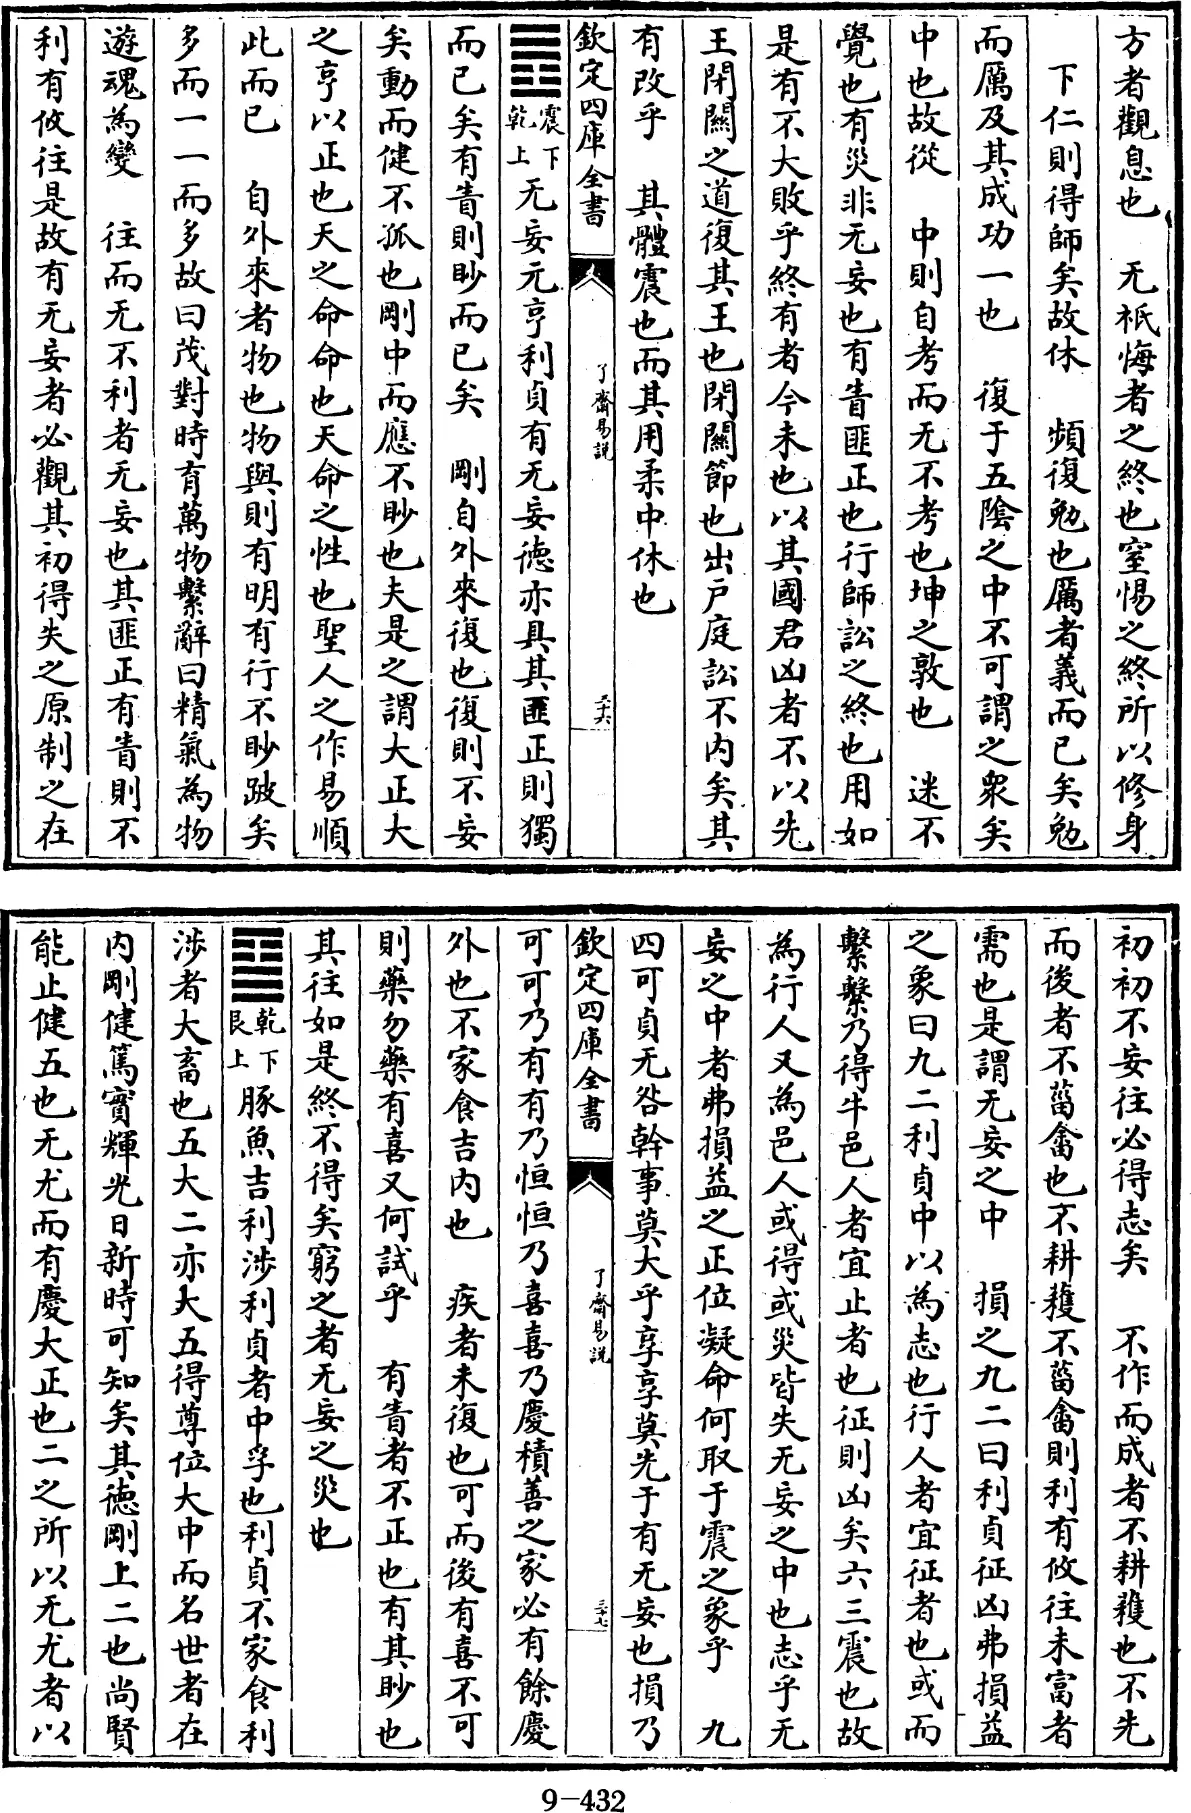 方者觀息也　无祇悔者之終也窒惕之終所以修身
下仁則得師矣故休　頻復勉也厲者義而已矣勉
而厲及其成功一也　復于五陰之中不可謂之衆矣
中也故從　中則自考而无不考也坤之敦也　迷不
覺也有災非无妄也有眚匪正也行師訟之終也用如
是有不大敗乎終有者今未也以其國君凶者不以先
王閉關之道復其王也閉關節也出戶庭訟不内矣其
有改乎　其體震也而其用柔中休也
欽定四庫全書
了齋易說
三十六
䷘震下乾上无妄元亨利貞有无妄德亦具其匪正則獨
而已矣有眚則眇而已矣　剛自外來復也復則不妄
矣動而健不孤也剛中而應不眇也夫是之謂大正大
之亨以正也天之命命也天命之性也聖人之作易順
此而已　自外來者物也物與則有明有行不眇跛矣
多而一一而多故曰茂對時育萬物繫辭曰精氣為物
遊魂為變　往而无不利者无妄也其匪正有眚則不
利有攸往是故有无妄者必觀其初得失之原制之在
初初不妄往必得志矣　不作而成者不耕穫也不先
而後者不菑畬也不耕穫不菑畬則利有攸往未富者
需也是謂无妄之中　損之九二曰利貞征凶弗損益
之象曰九二利貞中以為志也行人者宜征者也或而
繫繫乃得牛邑人者宜止者也征則凶矣六三震也故
為行人又為邑人或得或災皆失无妄之中也志乎无
妄之中者弗損益之正位凝命何取于震之象乎　九
四可貞无咎幹事莫大乎享享莫先于有无妄也損乃
欽定四庫全書
了齋易說
三十七
可可乃有有乃恒恒乃喜喜乃慶積善之家必有餘慶
外也不家食吉内也　疾者未復也可而後有喜不可
則藥勿藥有喜又何試乎　有眚者不正也有其眇也
其往如是終不得矣窮之者无妄之災也
䷙乾下艮上豚魚吉利涉利貞者中孚也利貞不家食利
涉者大畜也五大二亦大五得尊位大中而名世者在
内剛健篤實輝光日新時可知矣其德剛上二也尚賢
能止健五也无尤而有慶大正也二之所以无尤者以
9-432